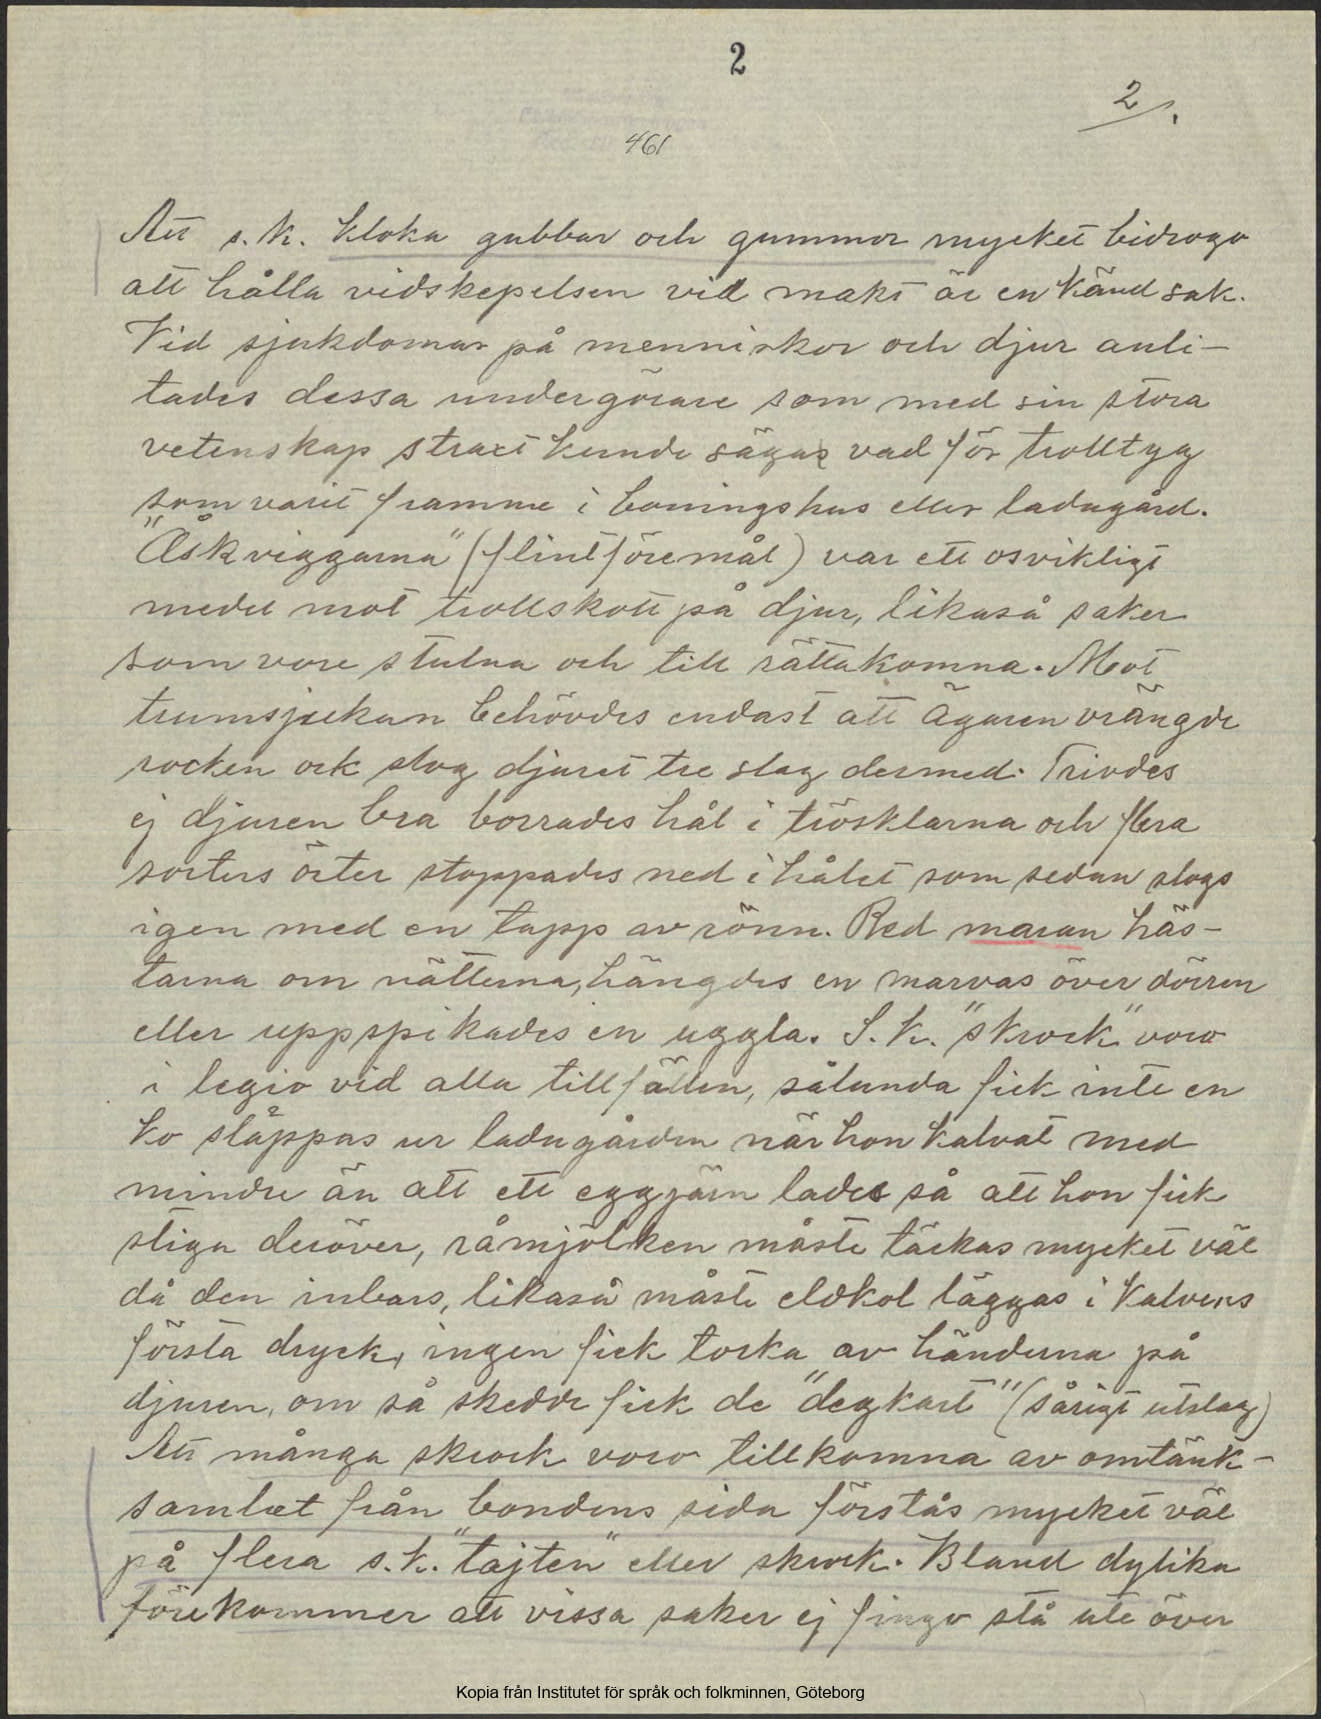 2
2/.
461
Att s.k. kloka gubbar och gummor mycket bidrogo
att hålla vidskepelsen vid makt är en känd sak.
Vid sjukdomar på menniskor och djur anli-
tades dessa undergörare som med sin stora
vetenskap straxt kunde säga vad för trolltyg
som varit framme i boningshus eller ladugård.
"Åskviggarna" (flintföremål) var ett osvikligt
medel mot trollskott på djur, likaså saker
som vore stulna och till rättakomna. Mot
trumsjukan behövdes endast att ägaren vrängde
rocken ock slog djuret tre slag dermed. Trivdes
ej djuren bra borrades hål i trösklarna och flera
sorters örter stoppades ned i hålet som sedan slogs
igen med en tapp av rönn. Red maran häs-
tarna om nätterna, hängdes en marvas över dörren
eller uppspikades en uggla. S.k. "skrock" voro
i legio vid alla tillfällen, sålunda fick inte en
ko släppas ur ladugården när hon kalvat med
mindre än att ett eggjärn lades så att hon fick
stiga deröver, råmjölken måste täckas mycket väl
då den inbars, likaså måste eldkol läggas i kalvens
första dryck, ingen fick torka av händerna på
djuren, om så skedde fick de "degkart" (sårigt utslag)
Att många skrock voro tillkomna av omtänk-
samhet från bondens sida förstås mycket väl
på flera s.k. "tajten" eller skrock. Bland dylika
förekommer att vissa saker ej fingo stå ute över
Kopia från Institutet för språk och folkminnen, Göteborg